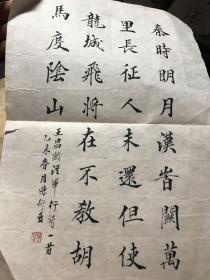 秦時明月漢旹關萬
里長征人未還但使
龍城飛將在不教胡
馬度陰山
王昌齡從軍行詩一首
乙未春月